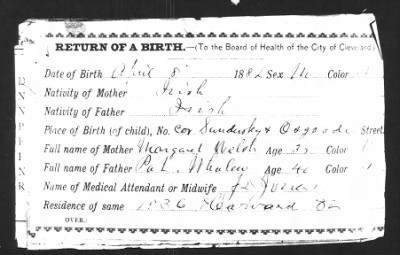 RETURN OF A BIRTH.—(To the Board of Health of the City of Cleveland.)
Date of Birth April 8 1882 Sex M Color
Nativity of Mother Irish
Nativity of Father Irish
Place of Birth (of child), No. Cor Sandusky & Osgood Street.
Full name of Mother Margaret Welsh Age 35 Color
Full name of Father Pat. Whalen Age 40 Color
Name of Medical Attendant or Midwife
Residence of same 1536 Harvard
OVER.